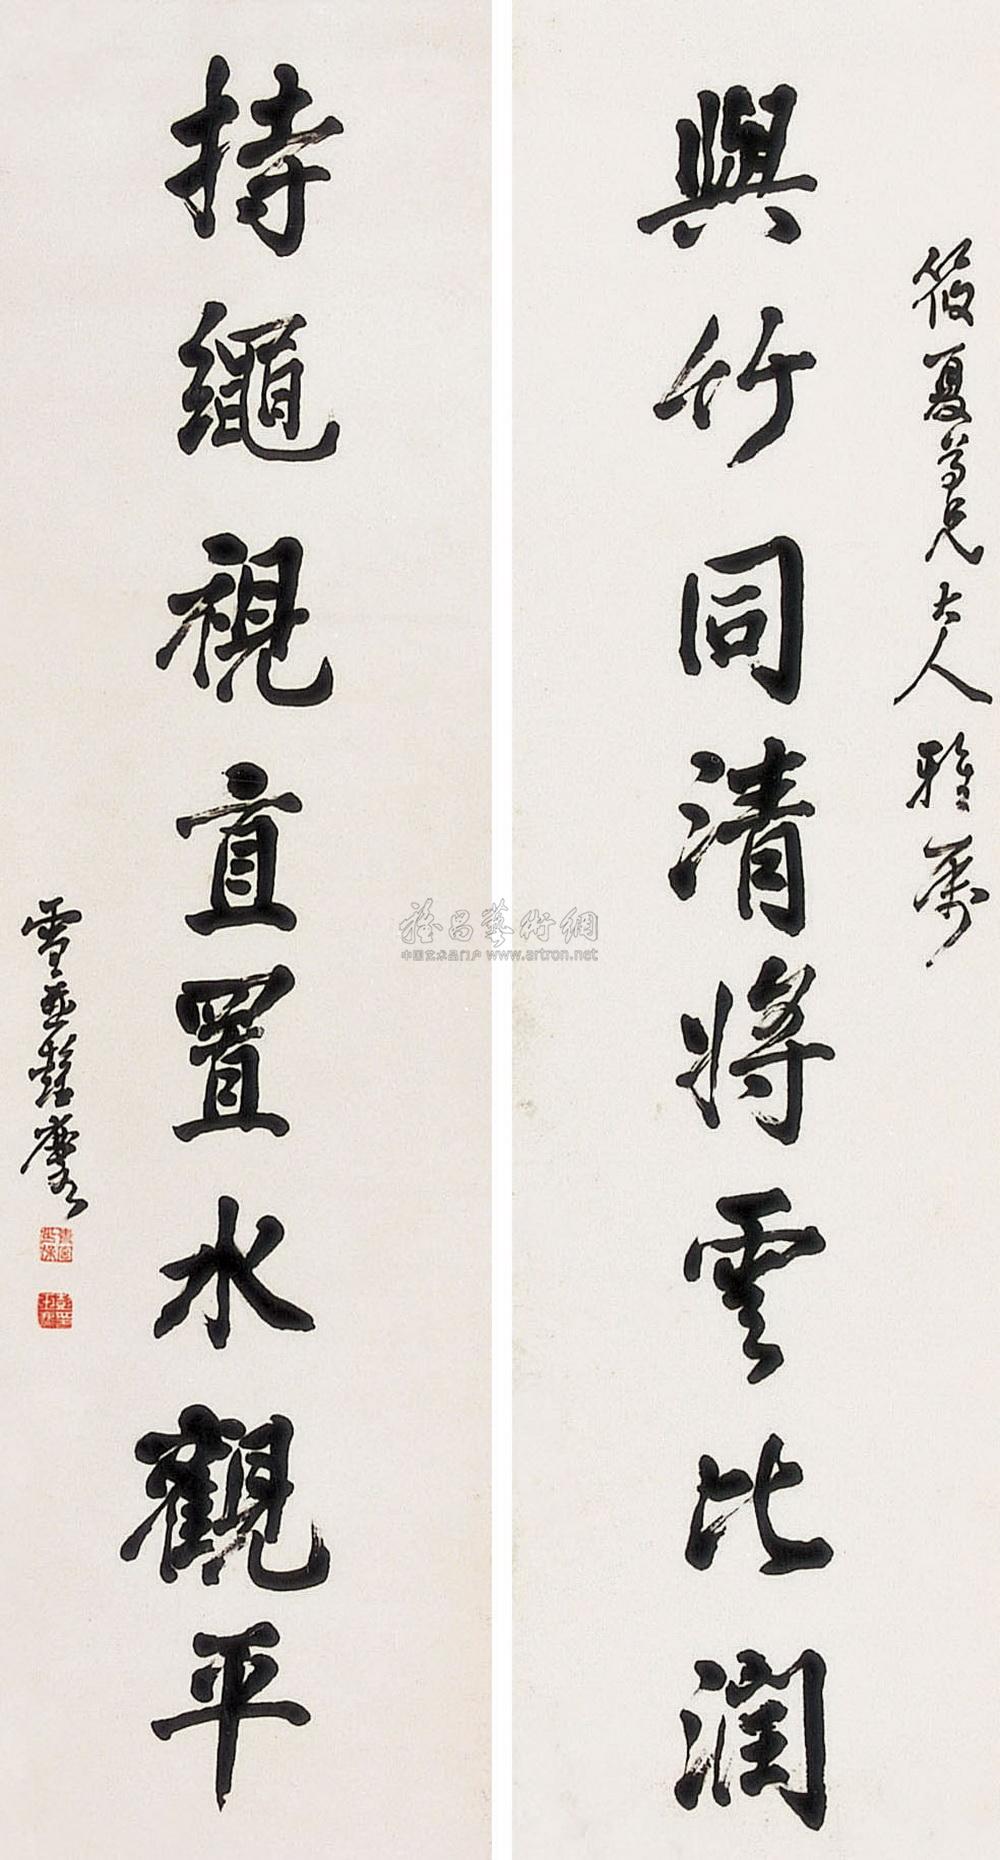 筱夏尊兄大人雅属
與竹同清將雲比潤
持繩視直置水觀平
雪
雅昌藝術網
中国艺术品门户 www.artron.net